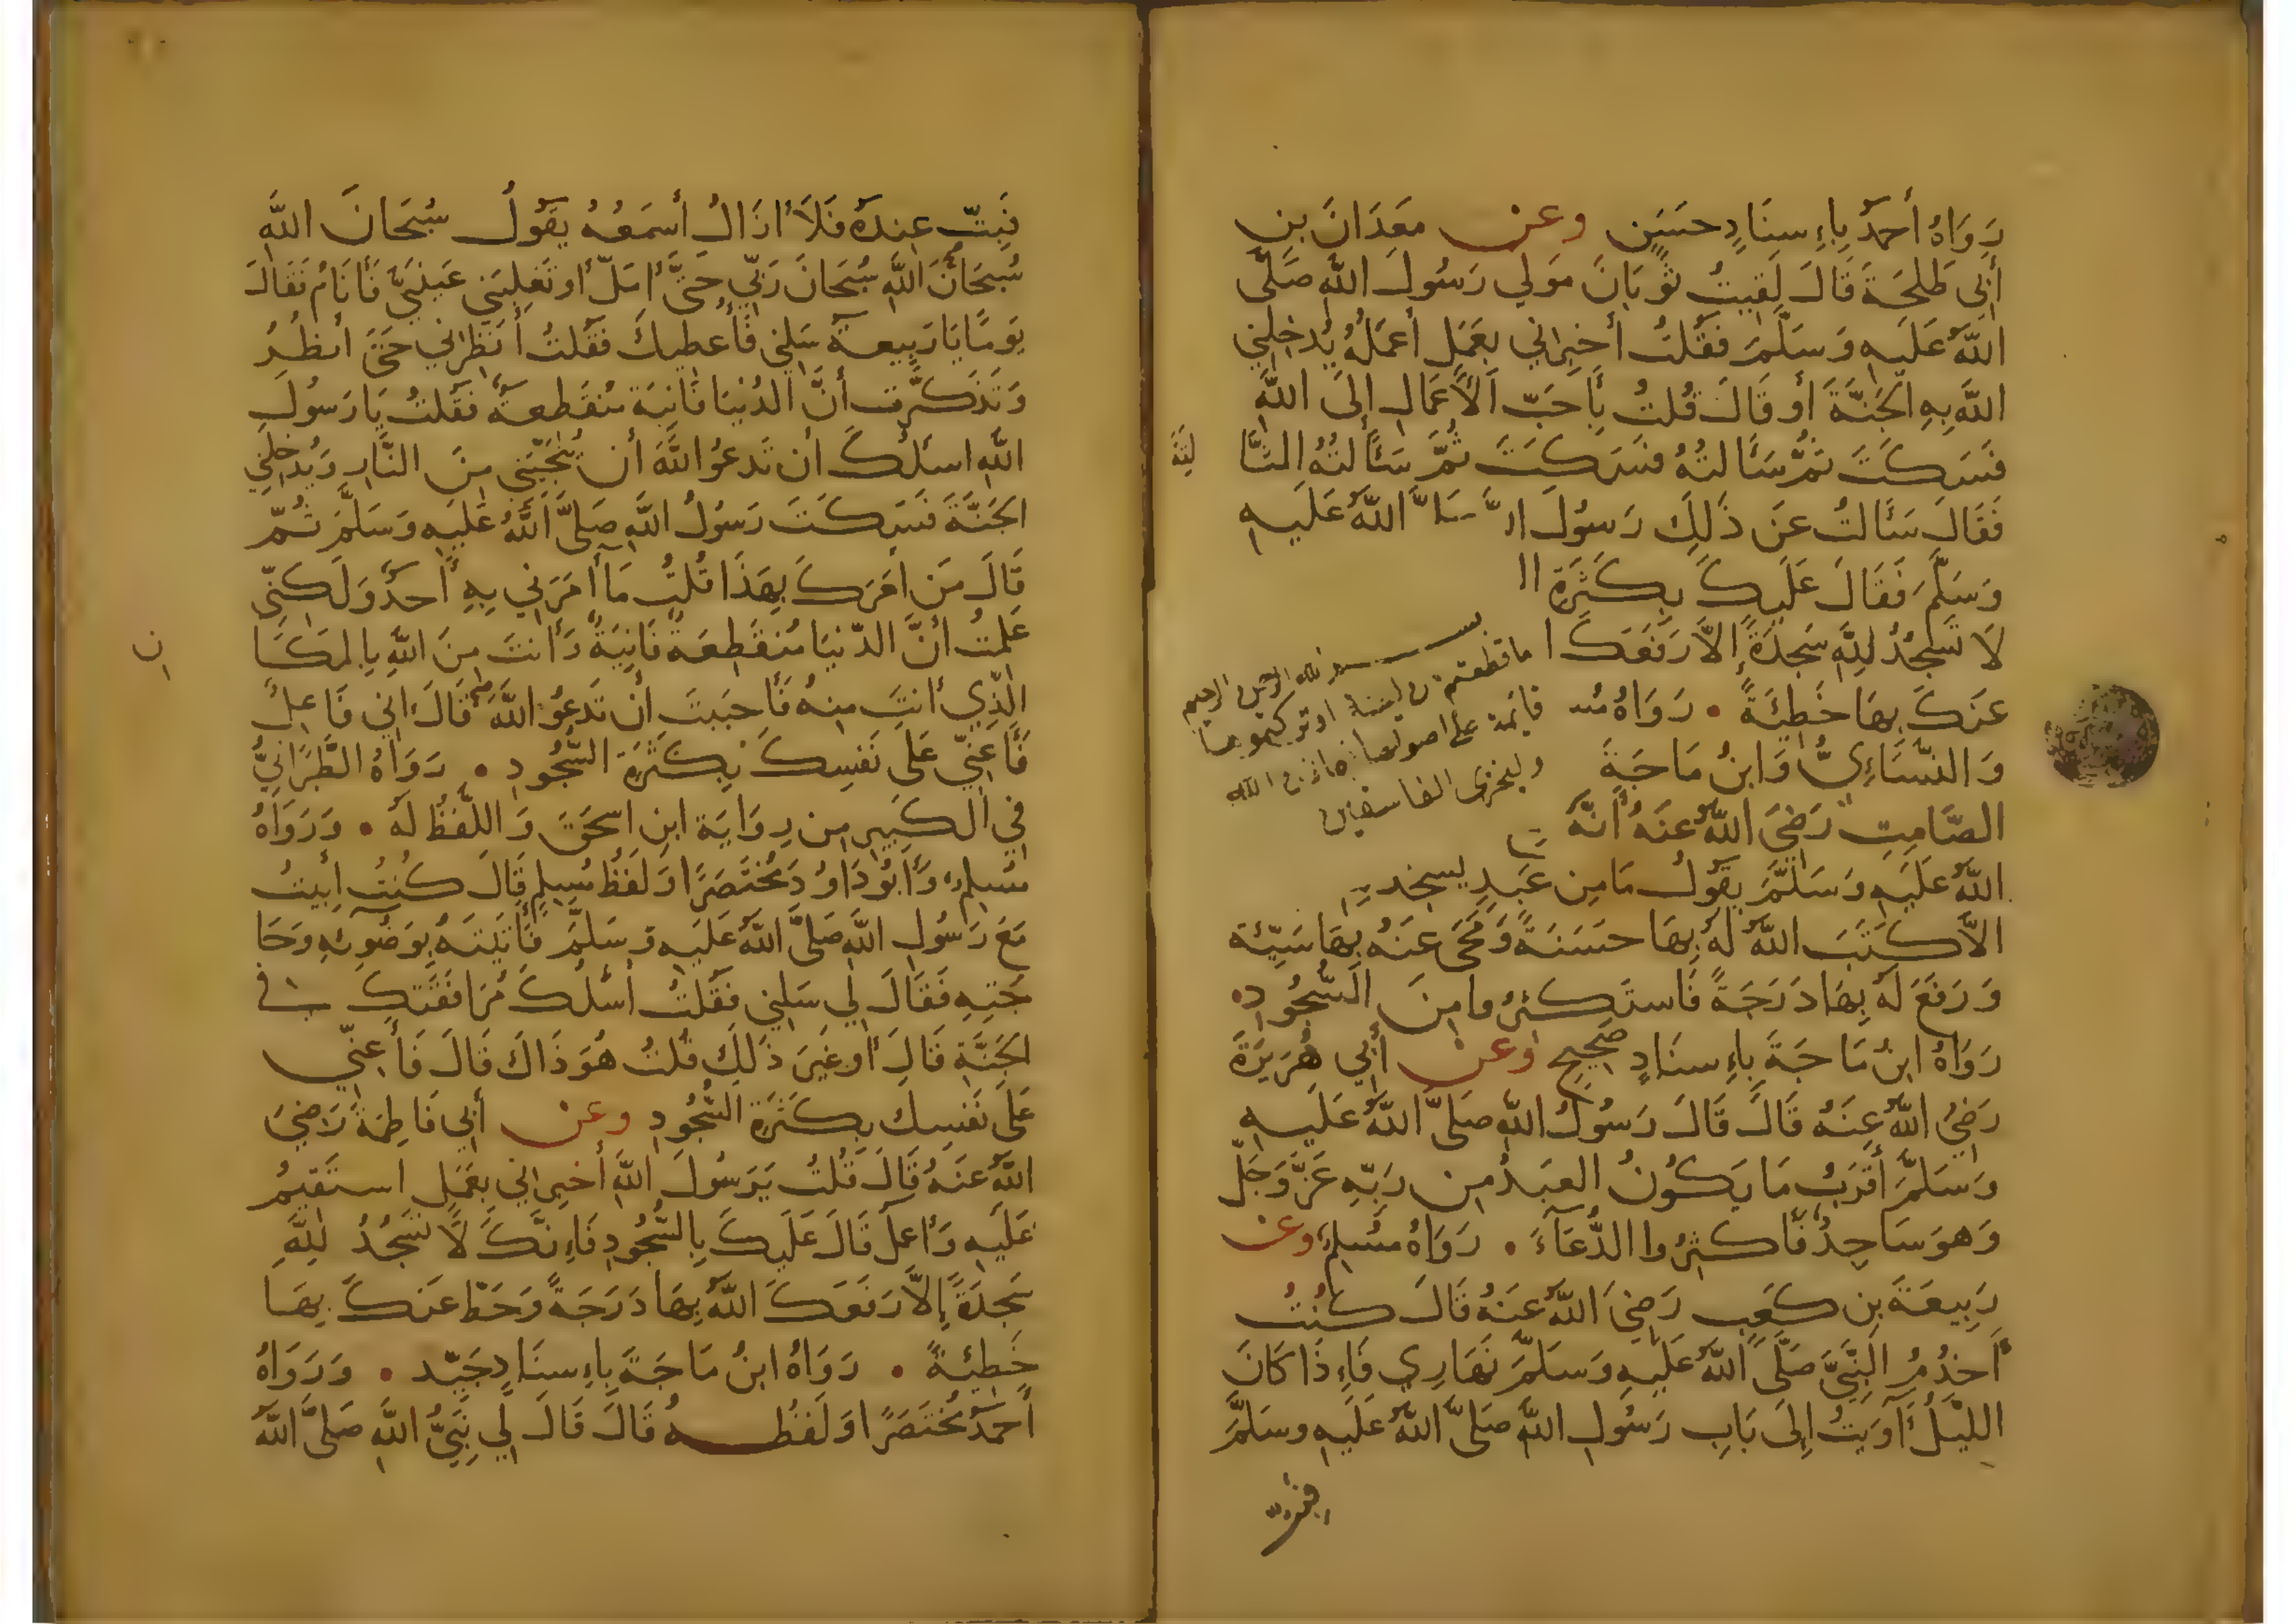 رَوَاهُ أَحْمَدُ بِاءِسنَادٍ حَسَنٍ وعن مَعَدَانَ بنِ
أَبِي طَلحَةَ قَالَ لَقِيتُ ثَوبَانَ مَولي رَسُولِ اللَّهِ صَلَّى
اللَّهُ عَلَيهِ وَسَلَّمَ فَقُلتُ أَخبِرنِي بِعَمَلٍ أَعمَلُهُ يُدخِلُنِي
اللَّهُ بِهِ الجَنَّةَ أَو قَالَ قُلتُ بِأَحَبِّ الأَعمَالِ إِلَى اللَّهِ
فَسَكَتَ ثُمَّ سَأَلتُهُ فَسَكَتَ ثُمَّ سَأَلتُهُ الثَّا
لِثَةَ
فَقَالَ سَأَلتُ عَن ذَلِكَ رَسُولَ اللَّه عَلَيهِ
وَسَلَّمَ فَقَالَ عَلَيكَ بِكَثرَةِ
لَا تَسجُدُ لِلَّهِ سَجدَةً إِلاَّ رَفَعَكَ ا
عَنكَ بِهَا خَطِيئَةً • رَوَاهُ
وَالنَّسَاءِيُّ وَابنُ مَاجَةَ
الصَّامِتِ رَضِيَ اللَّهُ عَنهُ أَنَّهُ
بسم الله الرحمن الرحيم
ما قطعتم من لينة او تركتموها
قائمة على اصولها فباذن الله
وليخزى الفاسقين
اللَّهُ عَلَيهِ وَسَلَّمَ يَقُولُ مَا مِن عَبدٍ يسجد
الاَّ كَتَبَ اللَّهُ لَهُ بِهَا حَسَنَةً وَمَحَى عَنهُ بِهَا سَيِّئَة
وَرَفَعَ لَهُ بِهَا دَرَجَةً فَاستَكثِرُوا مِنَ السُّجُودِ •
رَوَاهُ ابنُ مَاجَةَ بِاءِسنَادٍ صَحِيحٍ وعن أَبِي هُرَيرَةَ
رَضِيَ اللَّهُ عَنهُ قَالَ قَالَ رَسُولُ اللَّهِ صَلَّى اللَّهُ عَلَيهِ
وَسَلَّمَ أَقرَبُ مَا يَكُونُ العَبدُ مِن رَبِّهِ عَزَّ وَجَلَّ
وَهوَ سَاجِدٌ فَأَكثِرُوا الدُّعَآءَ • رَوَاهُ مُسلِم، وعن
رَبِيعَةَ بنِ كَعَبٍ رَضِيَ اللَّهُ عَنهُ قَالَ كُنتُ
أَخدُمُ النَّبِيَّ صَلَّى اللَّهُ عَلَيهِ وَسَلَّمَ نَهَارِي فَاءِذَا كَانَ
اللَّيلُ آوَيتُ إِلَى بَابِ رَسُولِ اللَّهِ صَلَّى اللَّهُ عَلَيهِ وسَلَّمَ
فَبِتّ عِندَهُ فَلَا ازَالُ أَسمَعُهُ يَقُولُ سُبحَانَ اللَّهِ
سُبحَانَ اللَّهِ سُبحَانَ رَبِّي حَتَّى أَمَلَّ أَو تَغلِبَنِي عَينَيَّ فَأَنَامُ فَقَالَ
يَومًا يَا رَبِيعَةُ سَلنِي فَأُعطِيكَ فَقُلتُ أَنظِرنِي حَتَّى أَنظُرَ
وَتَذَكَّرتُ أَنَّ الدُنيَا فَانِيَة مُنقَطِعَةٌ فَقُلتُ يَا رَسُولَ
اللَّهِ اسئَلُكَ أن تَدعُوَ اللَّهَ أن يُنَجِّيَنِي مِنَ النَّارِ وَيُدخِلَنِي
الجَنَّةَ فَسَكَتَ رَسُولُ اللَّهِ صَلَّى اللَّهُ عَلَيهِ وَسَلَّمَ ثُمّ
قَالَ مَن أَمَرَكَ بِهَذَا قُلتُ مَا أَمَرَنِي بِهِ أَحَدٌ وَلَكِنِّي
عَلِمتُ أَنَّ الدّنيَا مُنقَطِعَةٌ فَانِيَةٌ وَأَنتَ مِنَ اللَّهِ بِالمَكَا
نِ
الَّذِي أَنتَ مِنهُ فَأَحبَبتُ أَن تَدعُوَ اللَّهَ قَالَ اني فَاعِلٌ
فَأَعِنِّي عَلَى نَفسِكَ بِكَثرَةِ السُّجُودِ • رَوَاهُ الطَّبَرَانِيُّ
فِي الكَبِيرِ مِن رِوَايَةِ ابنِ اسحَقَ وَاللَّفظُ لَهُ • وَرَوَاهُ
مُسلِم، وَأَبُو دَاوُدَ مُختَصَرًا وَلَفظُ مُسلِمٍ قَالَ كُنتُ أَبِيتُ
مَعَ رَسُولِ اللَّهِ صَلَّى اللَّهُ عَلَيهِ وَسَلَّمَ فَأَتَيتَهُ بِوَضُوئِهِ وَحَا
جَتِهِ فَقَالَ لِي سَلنِي فَقُلتُ أَسئَلُكَ مُرَافَقَتَكَ في
الجَنَّةِ قَالَ أَو غَيرَ ذَلِكَ قُلتُ هُوَ ذَاكَ قَالَ فَأَعِنِّي
عَلَى نَفسِكَ بِكَثرَةِ السُّجُودِ وعن أَبِي فَاطِمَةَ رَضِيَ
اللَّهُ عَنهُ قَالَ قُلتُ يَرَسُولَ اللَّهِ أَخبِرنِي بِعَمَلٍ استَقِيمُ
عَلَيهِ وَأَعمَل قَالَ عَلَيكَ بِالسُّجُودِ فَاءِنَّكَ لَا تَسجُدُ لِلَّهِ
سَجدَةً إِلاَّ رَفَعَكَ اللَّهُ بِهَا دَرَجَةً وَحَطَّ عَنكَ بِهَا
خَطِيئَةً • رَوَاهُ ابنُ مَاجَةَ بِاءِسنَادٍ جَيِّد • وَرَوَاهُ
أَحمَدُ مُختَصَرًا وَلَفظُهُ قَالَ قَالَ لِي نَبِيُّ اللَّهِ صَلَّى اللَّهُ